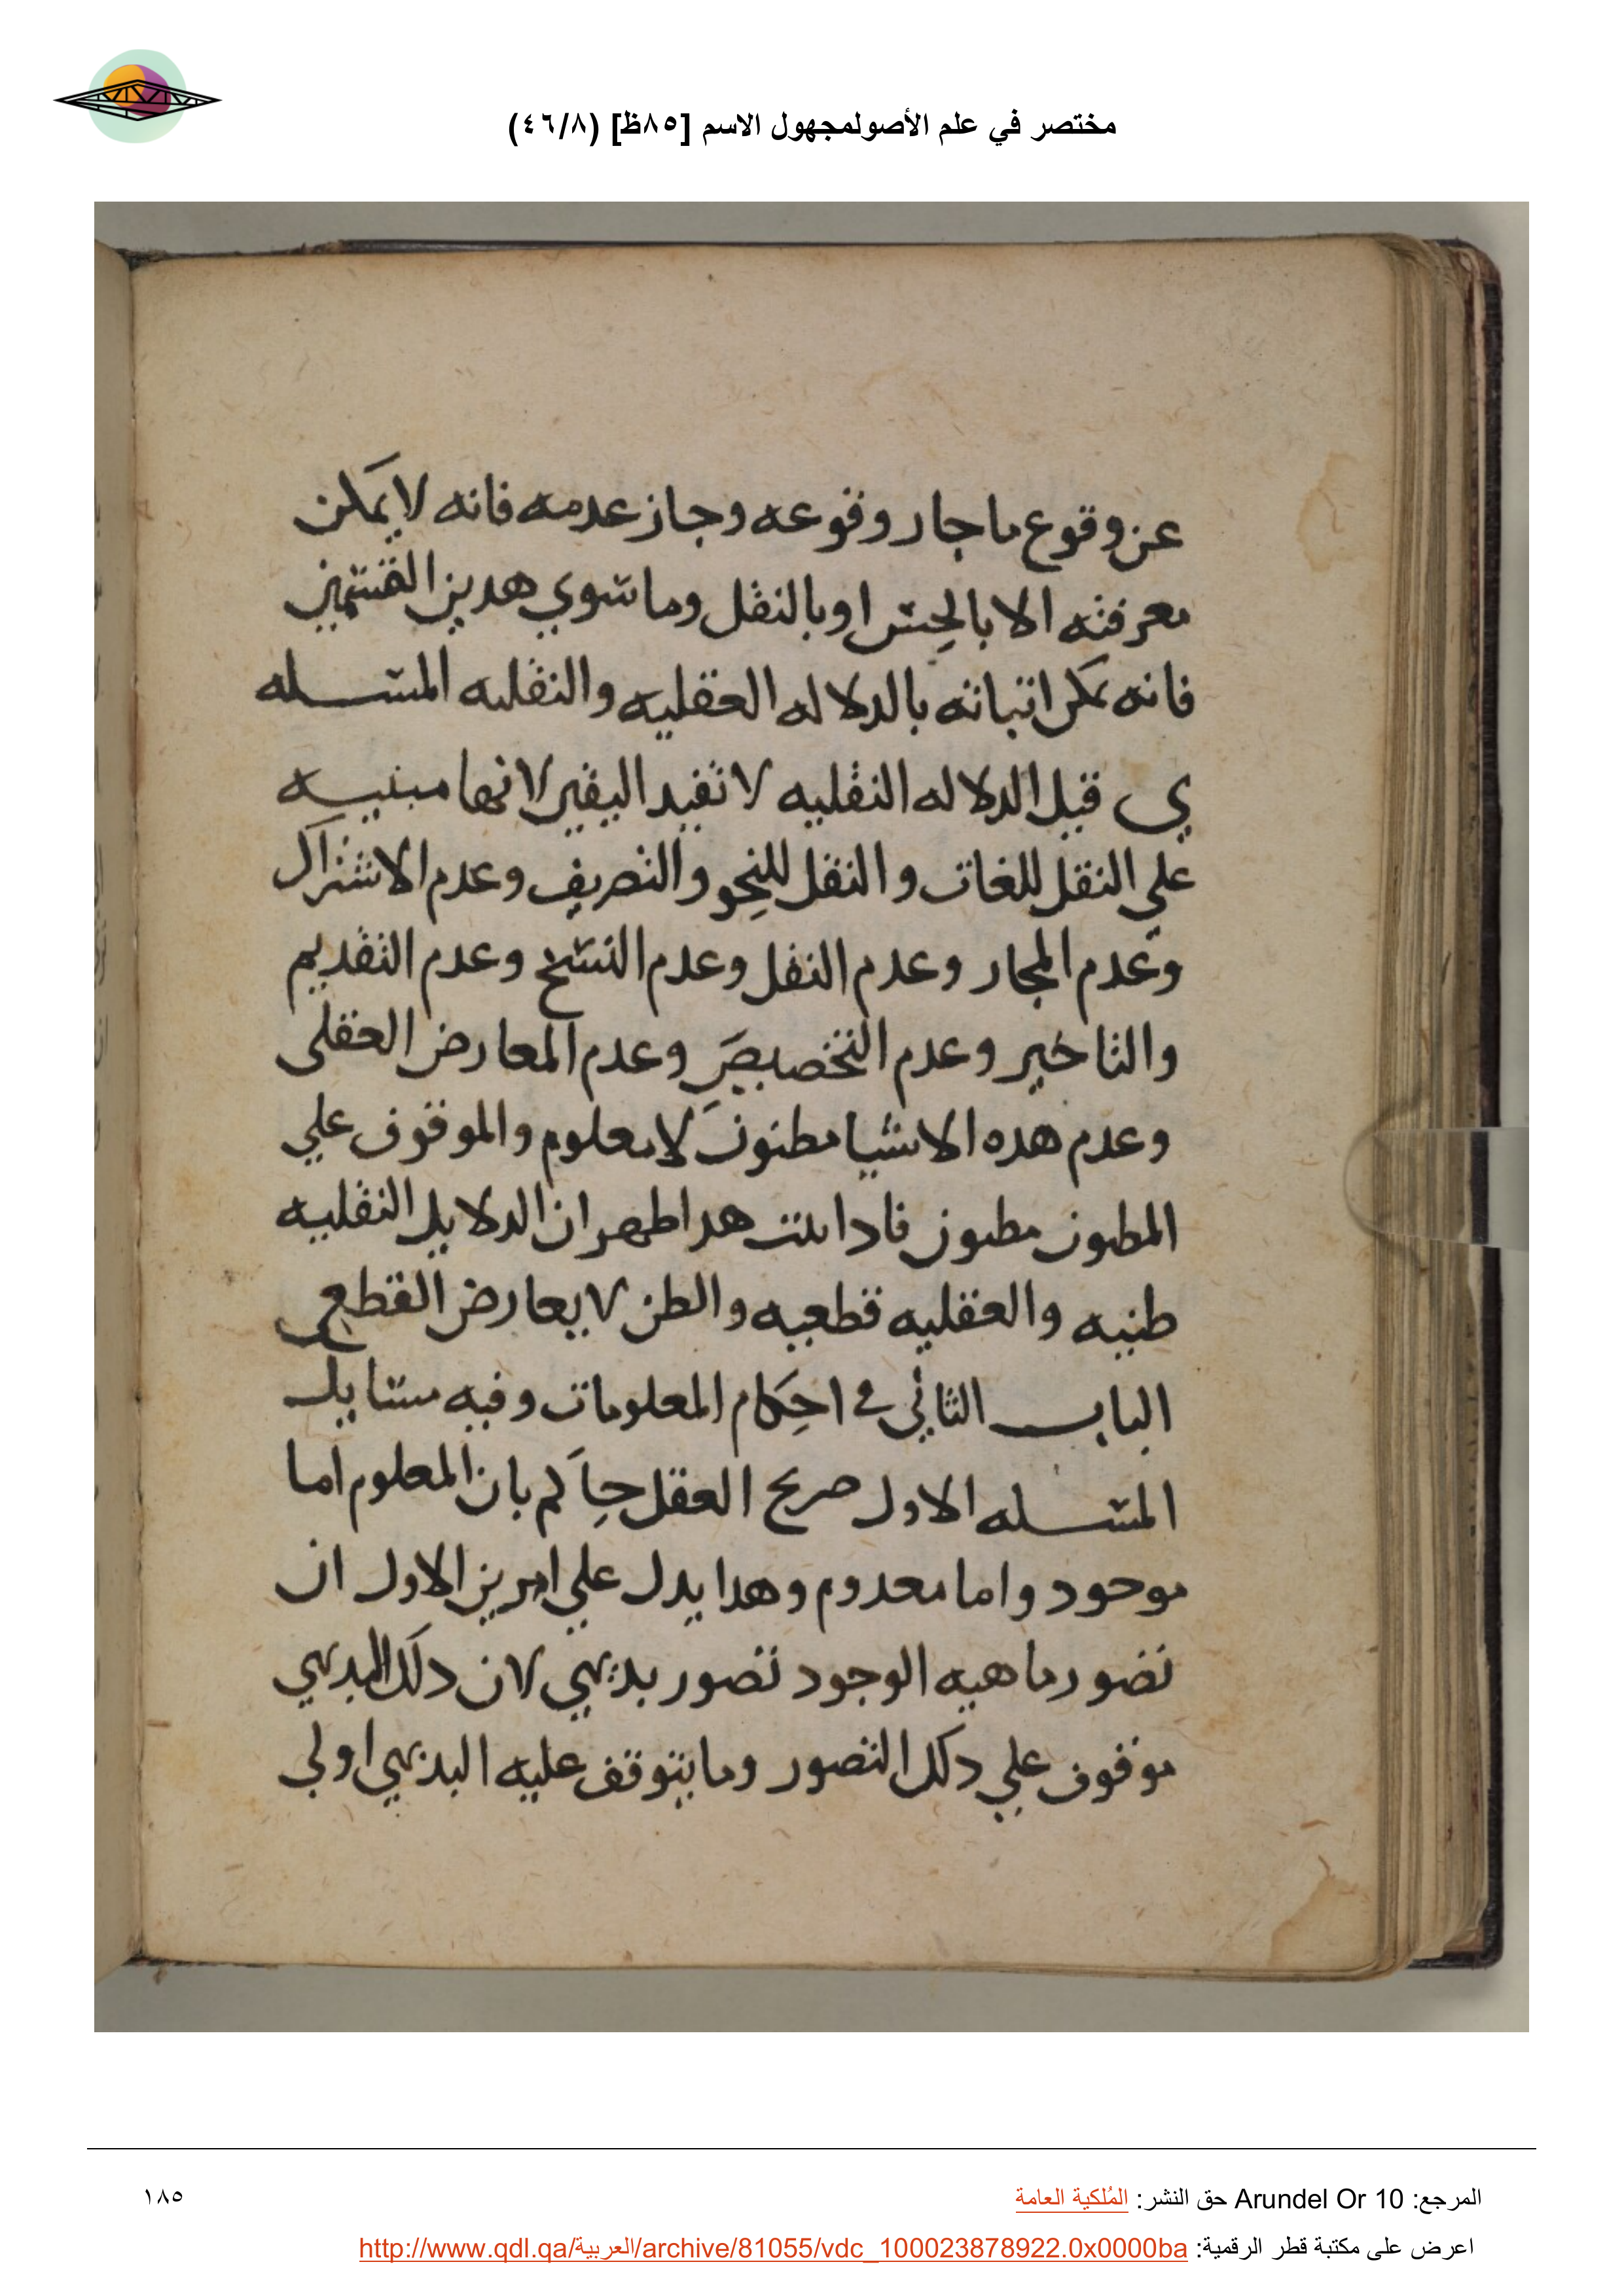 مختصر في علم الأصولمجهول الاسم [٨٥ظ] (٤٦/٨)
عن وقوع ما جار وقوعه وجاز عدمه فانه لا يمكن
معرفته الا بالحس او بالنقل وما سوي هدين القسمين
فانه يمكن اتباته بالدلاله العقليه والنقليه المسله
ي قيل الدلاله النقليه لا تفيد اليقين لانها مبنيه
علي النقل للغات والنقل للنحو والتصريف وعدم الاشتراك
وعدم المجار وعدم النقل وعدم النسخ وعدم التقديم
والتاخير وعدم التخصيص وعدم المعارض العقلى
وعدم هده الاشيا مطنون لا معلوم والموقوف علي
المطنون مطنون فادا تبت هدا طهر ان الدلايل النقليه
طنيه والعقليه قطعيه والطن لا يعارض القطعي
الباب الثاني في احكام المعلومات وفيه مسايل
المسله الاول صريح العقل حاكم بان المعلوم اما
موجود واما معدوم وهدا يدل علي امرين الاول ان
تصور ماهيه الوجود تصور بديهي لان دلك البديهي
موقوف علي دلك التصور وما يتوقف عليه البديهي اولي
المرجع: Arundel Or 10 حق النشر: المُلكية العامة
١٨٥
اعرض على مكتبة قطر الرقمية: http://www.qdl.qa/العربية/archive/81055/vdc_100023878922.0x0000ba